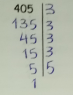 405 3
135 3
45 3
15 3
5 5
1